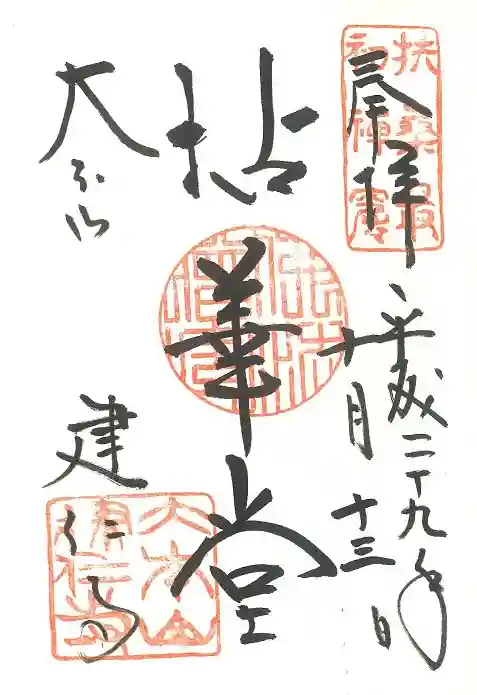 奉拝
平成二十九年
十月十三日
拈華堂
大本山
建仁寺
扶桑最
初禅窟
大本山
建仁寺